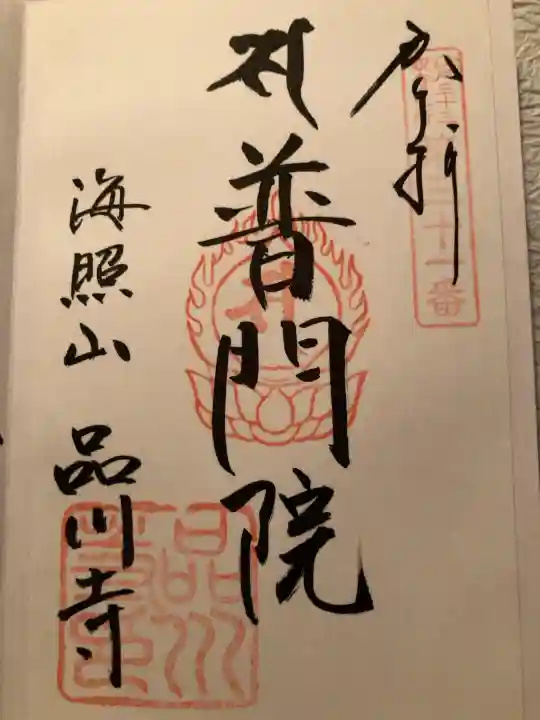 奉拝
三十一番
普門院
海照山 品川寺